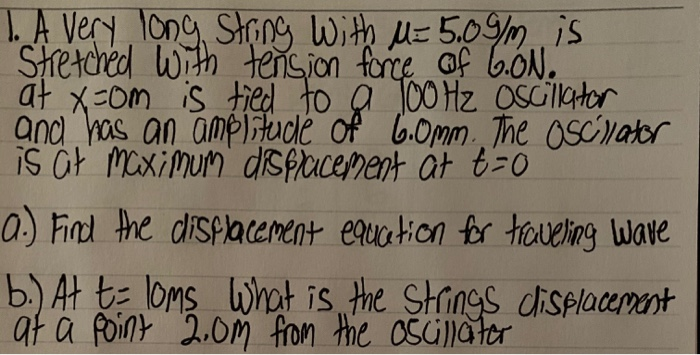 1. A very long string with μ= 5.0g/m is
Stretched with tension force of 6.0N.
at x=0m is tied to a 100 Hz oscillator
and has an amplitude of 6.0mm. The oscillator
is at maximum displacement at t=0
a.) Find the displacement equation for traveling wave
b.) At t= 10ms What is the strings displacement
at a point 2.0m from the oscillator